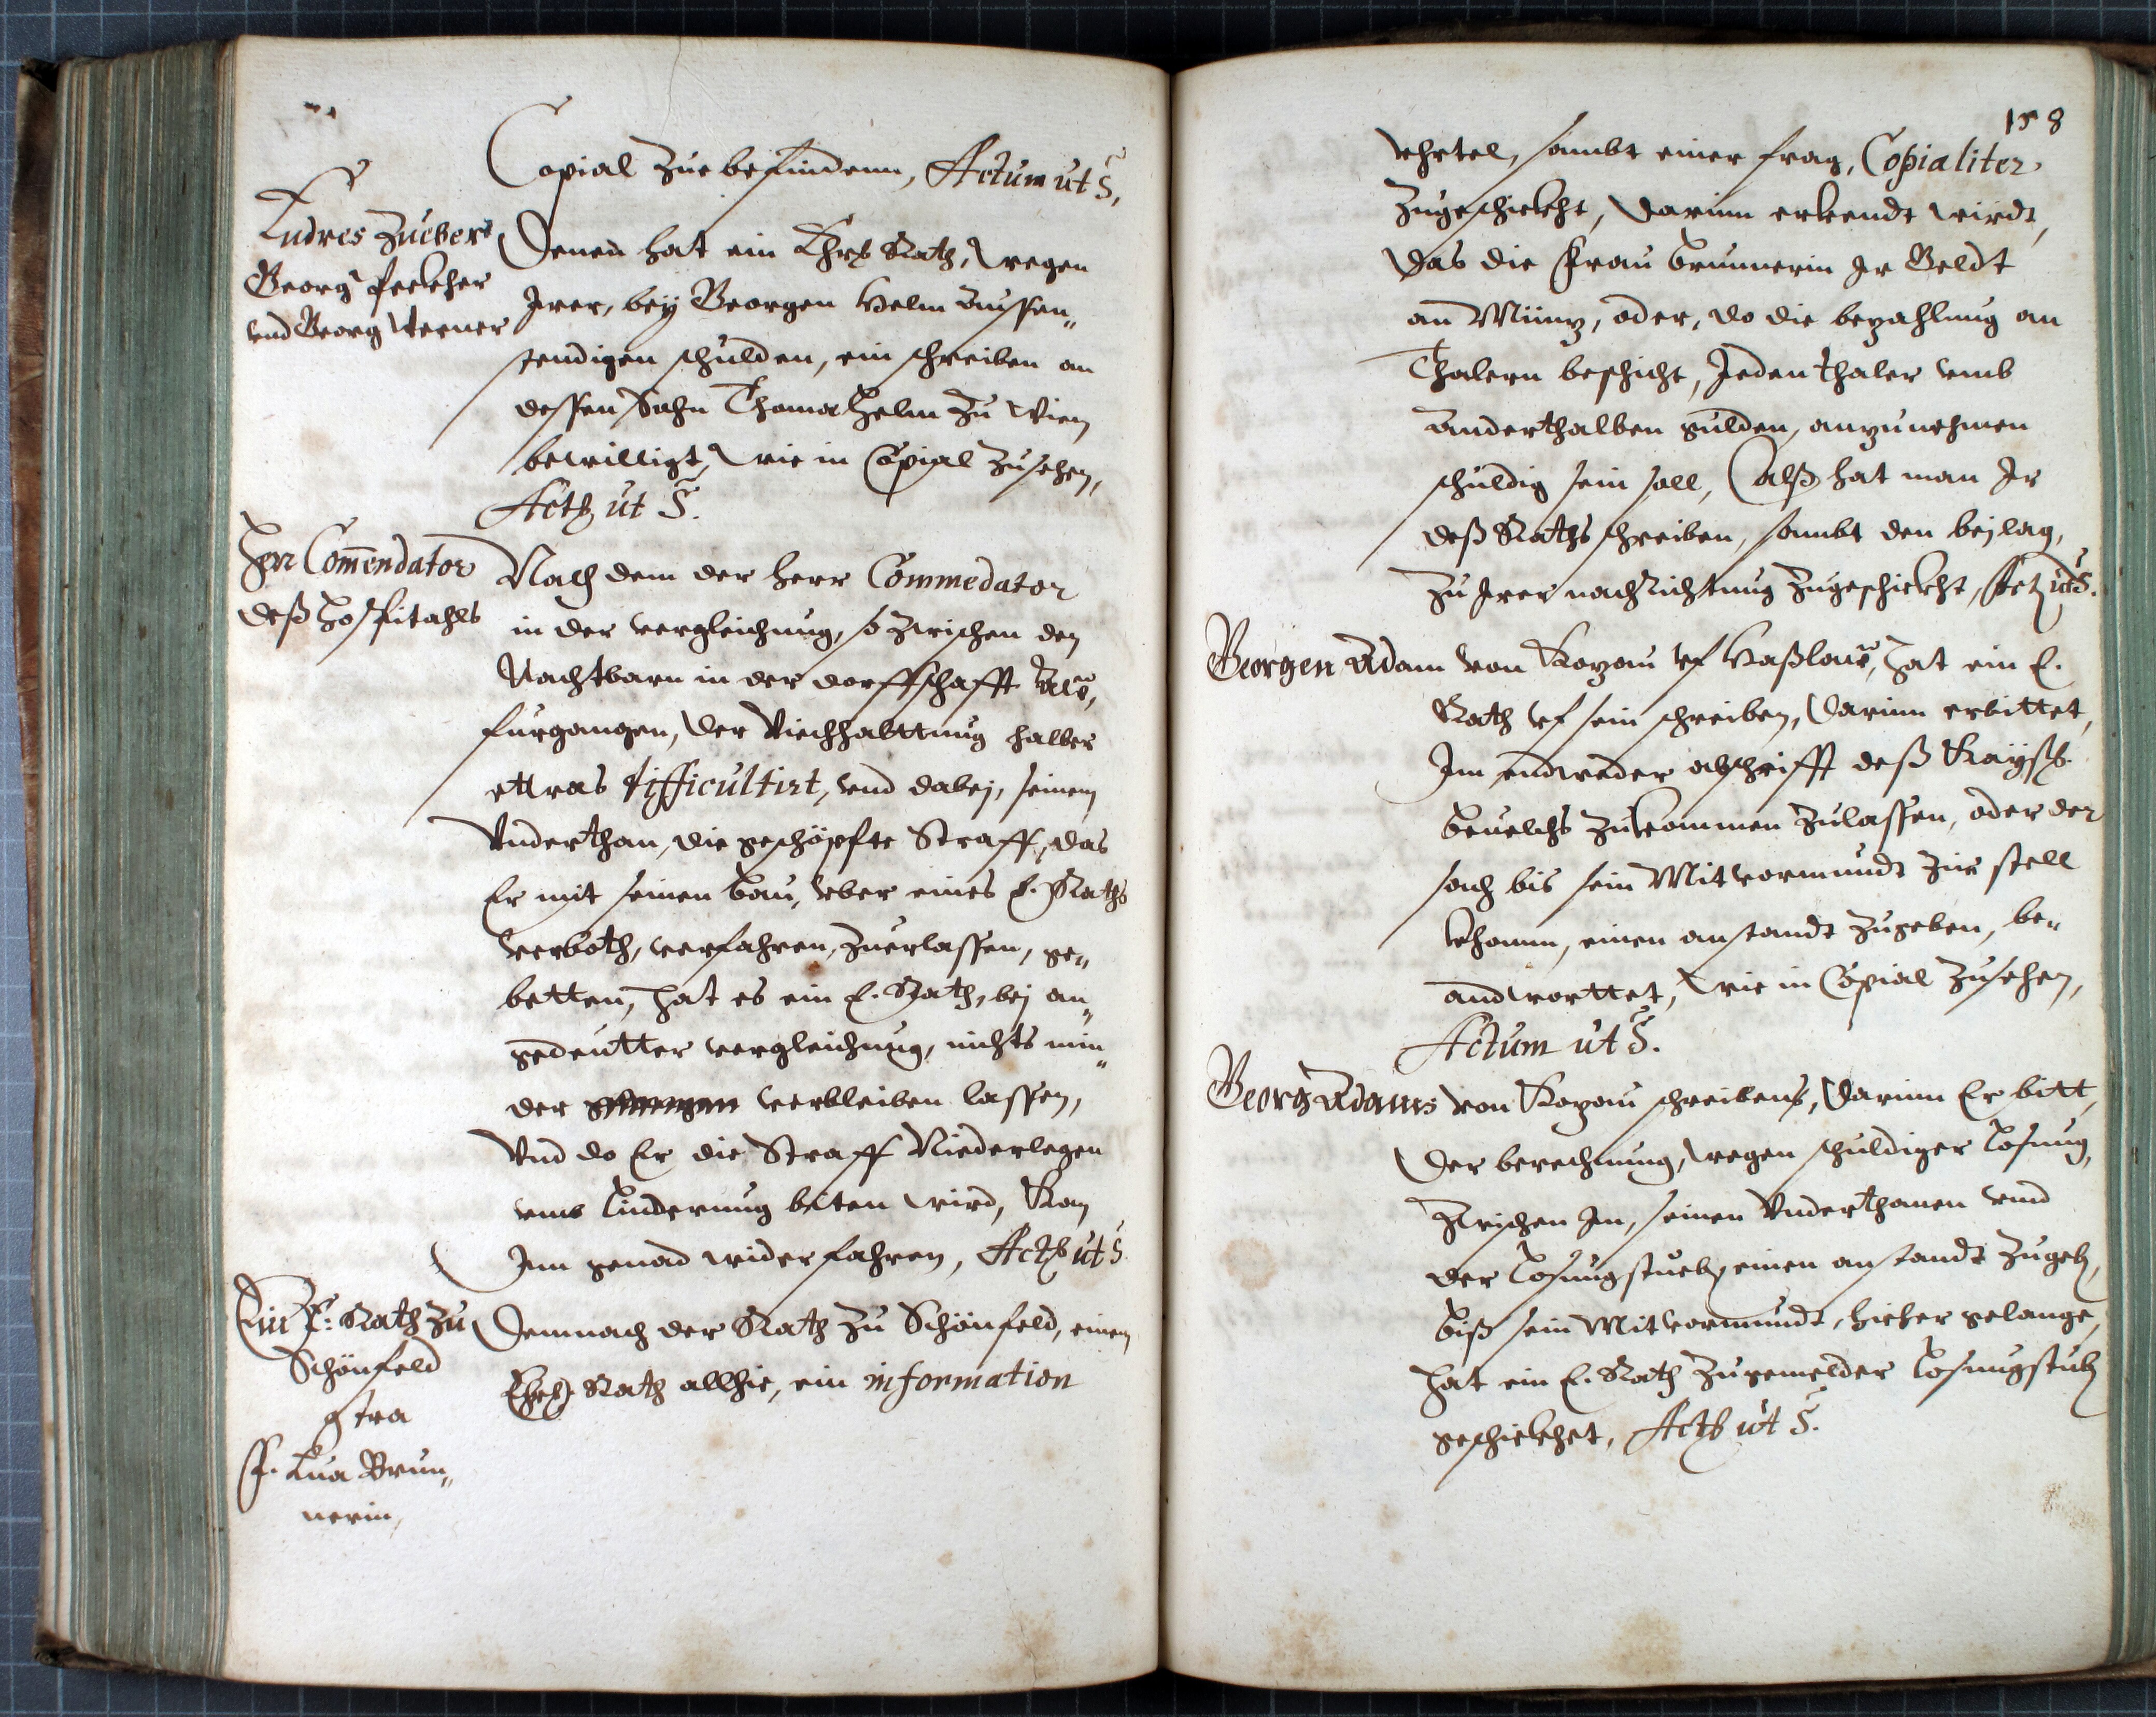 Copial Zue befindenn, Actum ut S.
Andres Zueber
Georg Peckher
vnd Georg Werner
Denen hat ein Ehrb Rath, wegen
Jrer, bey Georgen Helm aussen„
stendigen schulden, ein schreiben an
dessen Sohn Thoma Helm zu Wien
bewilligt, wie in Copial Zusehen,
Actū ut S.
Hrn Com̄endator
deß Hospitahls
Nach dem der herr Commedator
in der vergleichung, so zwischen den
Nachtbarn in der dorffschafft
furgangen, der Viechhalttung halber
ettwas difficultirt, vnd dabej, seinem
Vnderthan, die geschöpfte Straff, das
Er mit seinen bau, vber eines E. Raths
verboth, verfahren, Zuerlassen, ge„
betten, hat es ein E. Rath, bej an„
gedeutter vergleichung, nichts min„
der verbleiben lassen,
Vnd do Er die Straff Niederlegen
vmb Linderung biten wird, Kan
Jnn genad widerfahren, Actū ut S
Ein E. Rath Zu
Schönfeld
gtra
F. Eua Brun„
nerin,
Demnach der Rath Zu Schönfeld, einen
Rath allhie, ein information
158
vhrtel, sambt einer frag, Copialiter
Zugeschickht, darinn erkendt wirdt,
Das die Frau Brunnerin Jr Geldt
an Müntz, oder, do die bezahlung an
Thalern beschicht, Jeden thaler vmb
anderthalben gulden, anzunehmen
schuldig sein soll, Alß hat man Jr
deß Raths schreiben, sambt den beylag,
zu Jrer nachrichtung Zugeschickht, Act ut S.
Georgen Adam von Kozau vf Haßlau, hat ein E.
Rath vf sein schreiben, darinn erbittet,
Jm endweder abschrifft deß Kayß.
beuelchs Zukommen Zulassen, oder der
sach bis sein Mitvormundt zur stell
khomm, einen anstandt Zugeben, be„
andtworttet, wie in Copial Zusehen,
Actum ut S.
Georg Adams von Kozau schreibens, darinn Er bitt,
Der berechnung, wegen schuldiger Losung,
Zwischen Jm, seinen Vnderthanen vnd
der Losungstueb, einen anstandt Zugeb,
biß sein Mitvormundt, hieher gelange,
hat ein E. Rath Zugemelder Losungstub
geschickhet, Actū ut S.